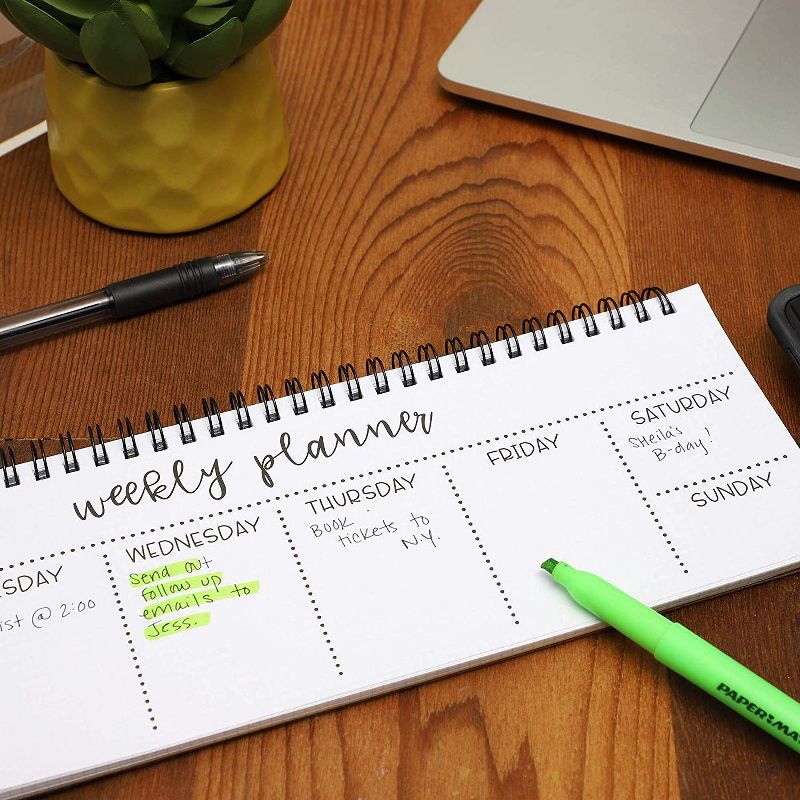 weekly planner
SDAY
ist @ 2:00
WEDNESDAY
Send out
follow up
emails to
Jess.
THURSDAY
BOOK
tickets to
N.Y.
FRIDAY
SATURDAY
SHeila's
B-day!
SUNDAY
PAPER:MA